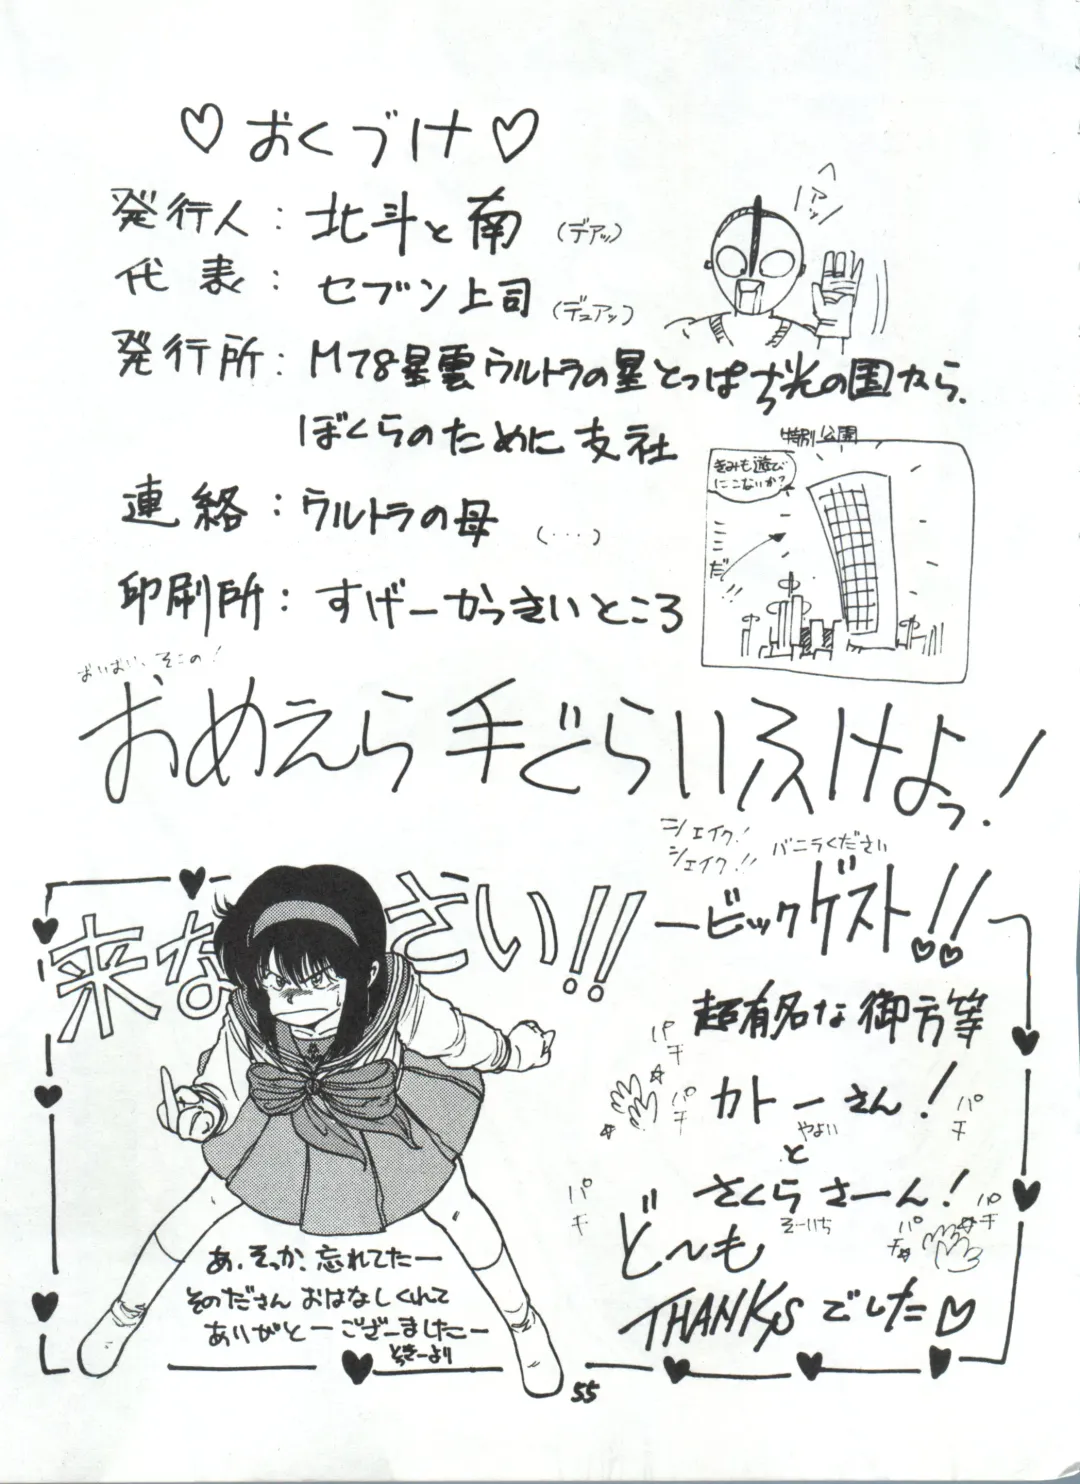 ♡おくづけ♡
発行人：北斗と南 (デアッ)
ヘアッ
代表：セブン上司 (デュアッ)
発行所：M78星雲ウルトラの星とっぱち光の国から、
ぼくらのために支社
連絡：ウルトラの母 (・・・)
印刷所：すげーかっさいところ
特別公園
きみも遊び
にこないか？
ここだ!!
おいおい、そこの！
おめえら手ぐらいふけよっ！
シェイク！
シェイク!!
バニラください
来なさい!!
ービックゲスト!!
超有名な御方等
カトーさん！
やよい
と
さくらさーん！
そーいち
パチ
パチ
パチ
パチ
パチ
パチ
どーも
THANKSでした♡
あ、そっか、忘れてたー
そのださんおはなしくれて
ありがとーございましたー
とっきーより
55